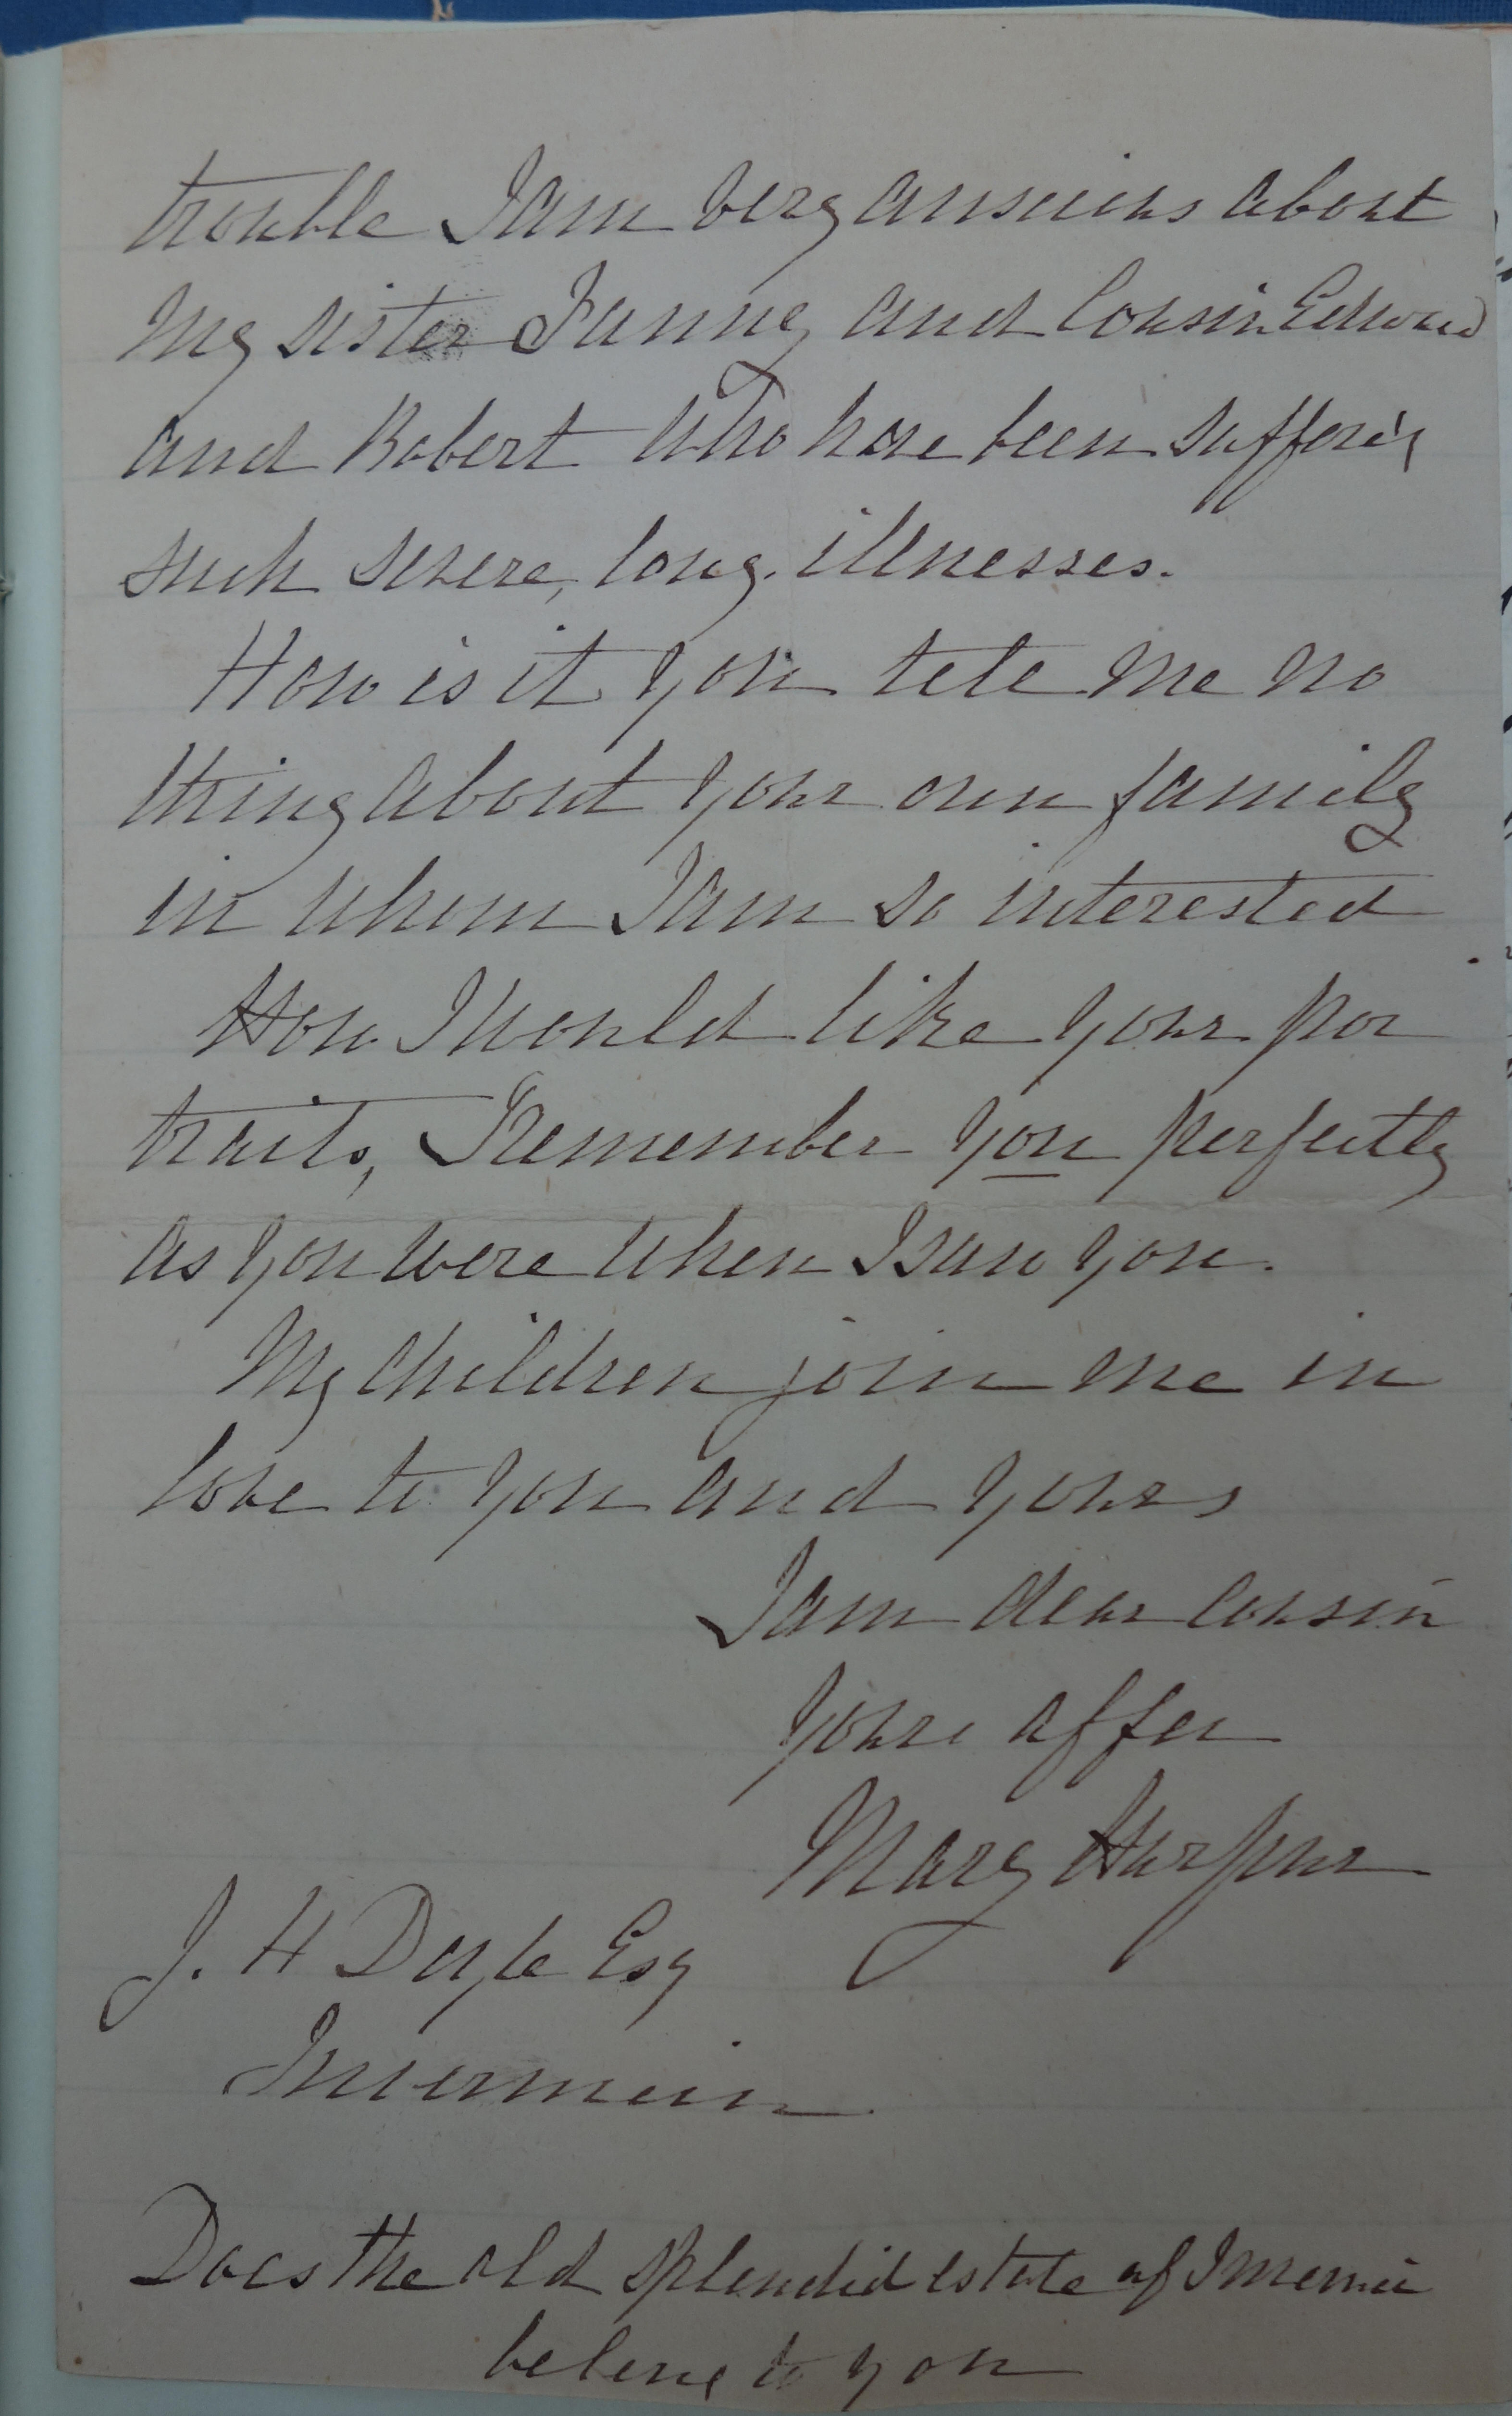 trouble I am very anxious about
My sister Fanny and Cousin Edward
and Robert who have been suffering
such severe, long. illnesses.
How is it you tell me no
thing about your own family
in whom I am so interested
How I would like your por
traits, I remember you perfectly
as you were when I saw you.
My children join me in
love to you and yours
I am dear cousin
Yours affec
Mary
J. H Doyle Esq
Does the old splendid estate of
belong to you